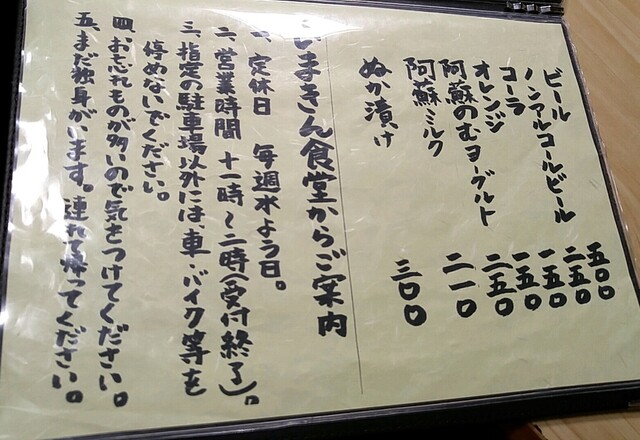 ビール 五〇〇
ノンアルコールビール 二五〇
コーラ 一五〇
オレンジ 一五〇
阿蘇のむヨーグルト 二五〇
阿蘇ミルク 二一〇
ぬか漬け 三〇〇
いまきん食堂からご案内
一、定休日 毎週水よう日。
二、営業時間 十一時〜二時(受付終了)。
三、指定の駐車場以外には、車・バイク等を
停めないでください。
四、お忘れものが多いので気をつけてください。
五、まだ独身がいます。連れて帰ってください。